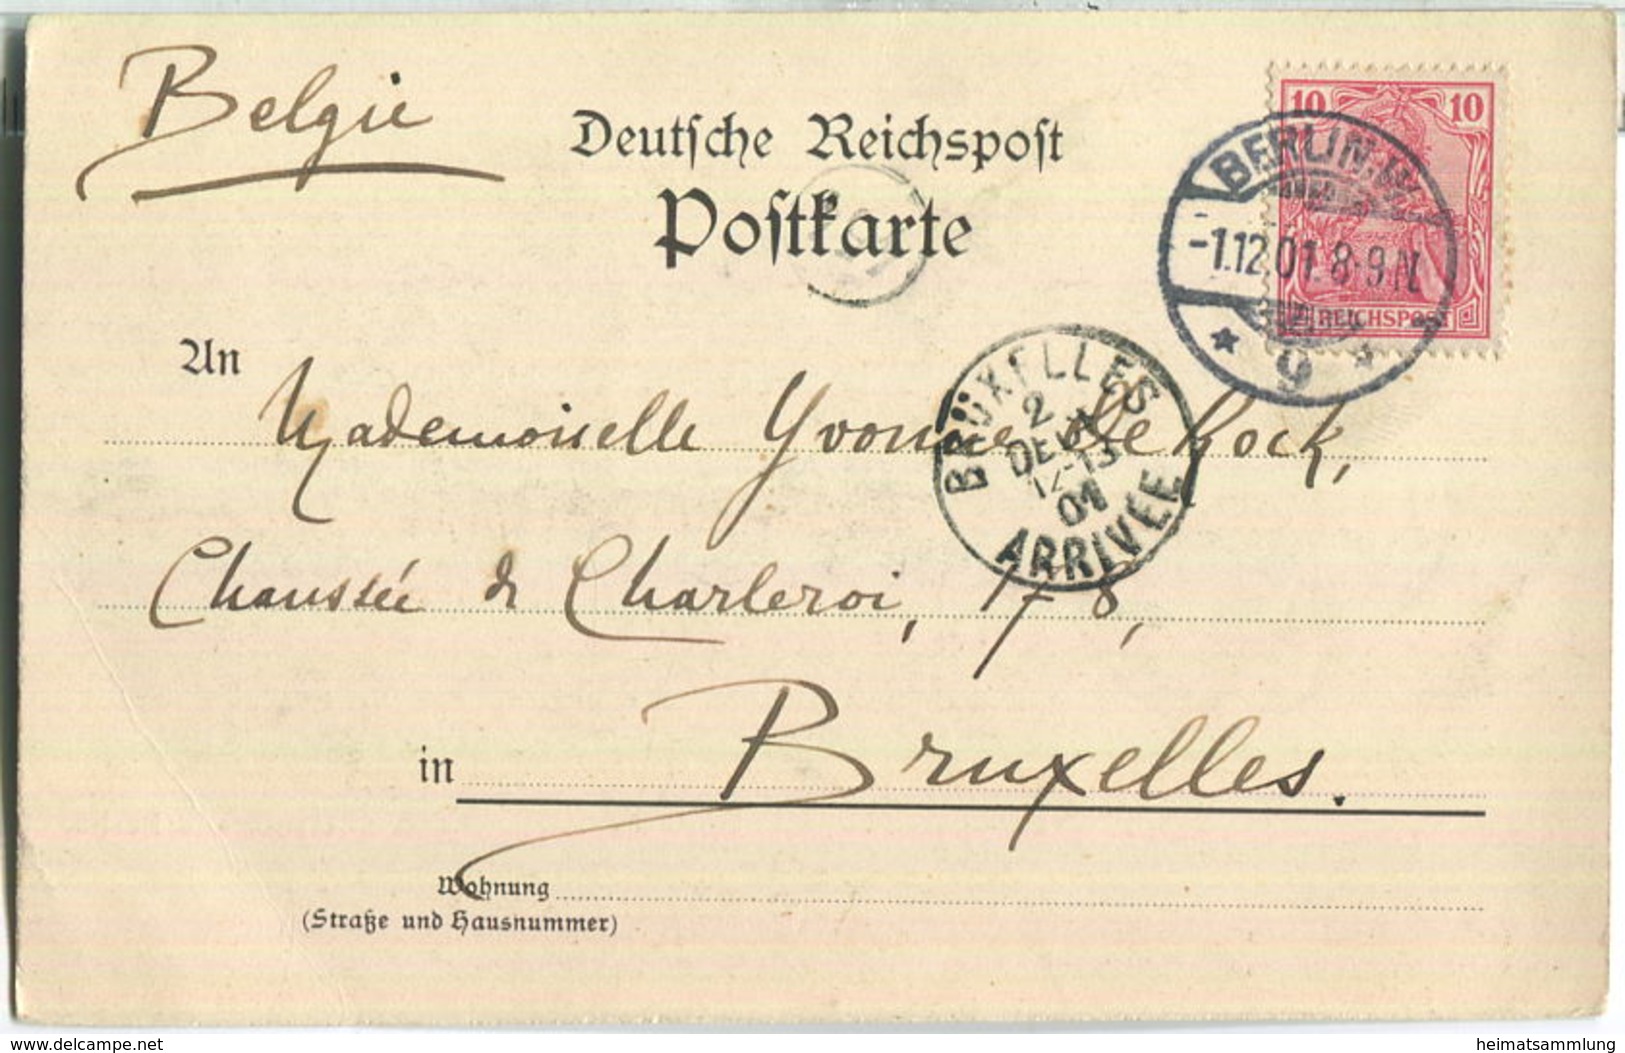 Belgie
Deutsche Reichspost
Postkarte
10 10
REICHSPOST
BERLIN.W.
-1.12.01.8-9N.
* 9 *
BRUXELLES
2
DEC
12-13
01
ARRIVÉE
An Mademoiselle Yvonne De Kock,
Chaussée de Charleroi, 178,
in Bruxelles.
Wohnung
(Straße und Hausnummer)
www.delcampe.net
heimatsammlung